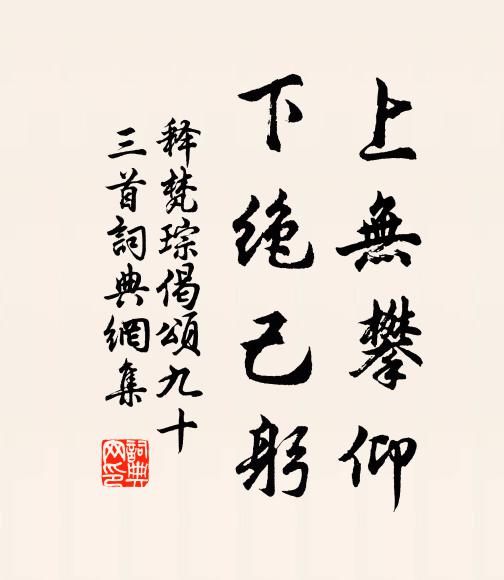 上無攀仰
下绝己躬
释梵琮偈頌九十
三首詞典網集
詞典
网印